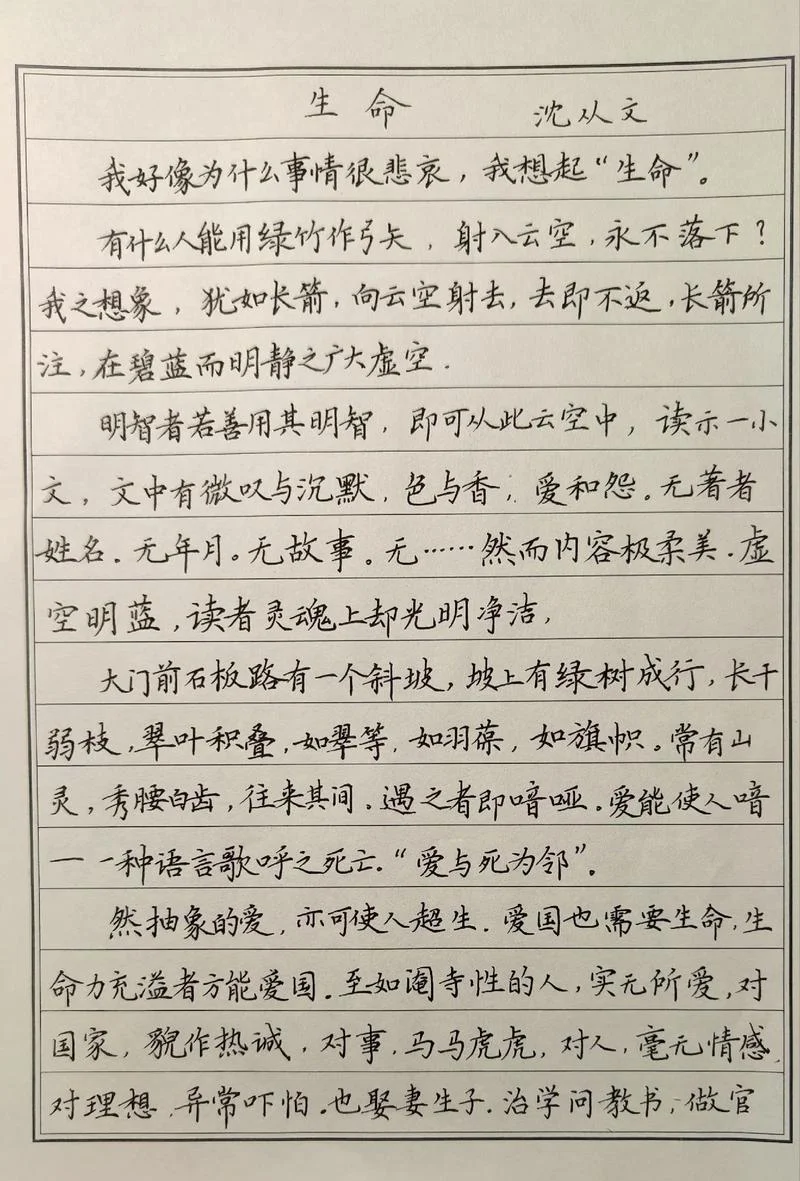 生命 沈从文
我好像为什么事情很悲哀，我想起“生命”。
有什么人能用绿竹作弓矢，射入云空，永不落下？
我之想象，犹如长箭，向云空射去，去即不返，长箭所
注，在碧蓝而明静之广大虚空．
明智者若善用其明智，即可从此云空中，读示一小
文，文中有微叹与沉默，色与香，爱和怨。无著者
姓名．无年月。无故事。无……然而内容极柔美．虚
空明蓝，读者灵魂上却光明净洁，
大门前石板路有一个斜坡，坡上有绿树成行，长干
弱枝，翠叶积叠，如翠等，如羽葆，如旗帜。常有山
灵，秀腰白齿，往来其间．遇之者即喑哑．爱能使人喑
一 一种语言歌呼之死亡．“爱与死为邻”。
然抽象的爱，亦可使人超生．爱国也需要生命，生
命力充溢者方能爱国．至如阉寺性的人，实无所爱，对
国家，貌作热诚，对事，马马虎虎，对人，毫无情感，
对理想，异常吓怕．也娶妻生子．治学问教书，做官